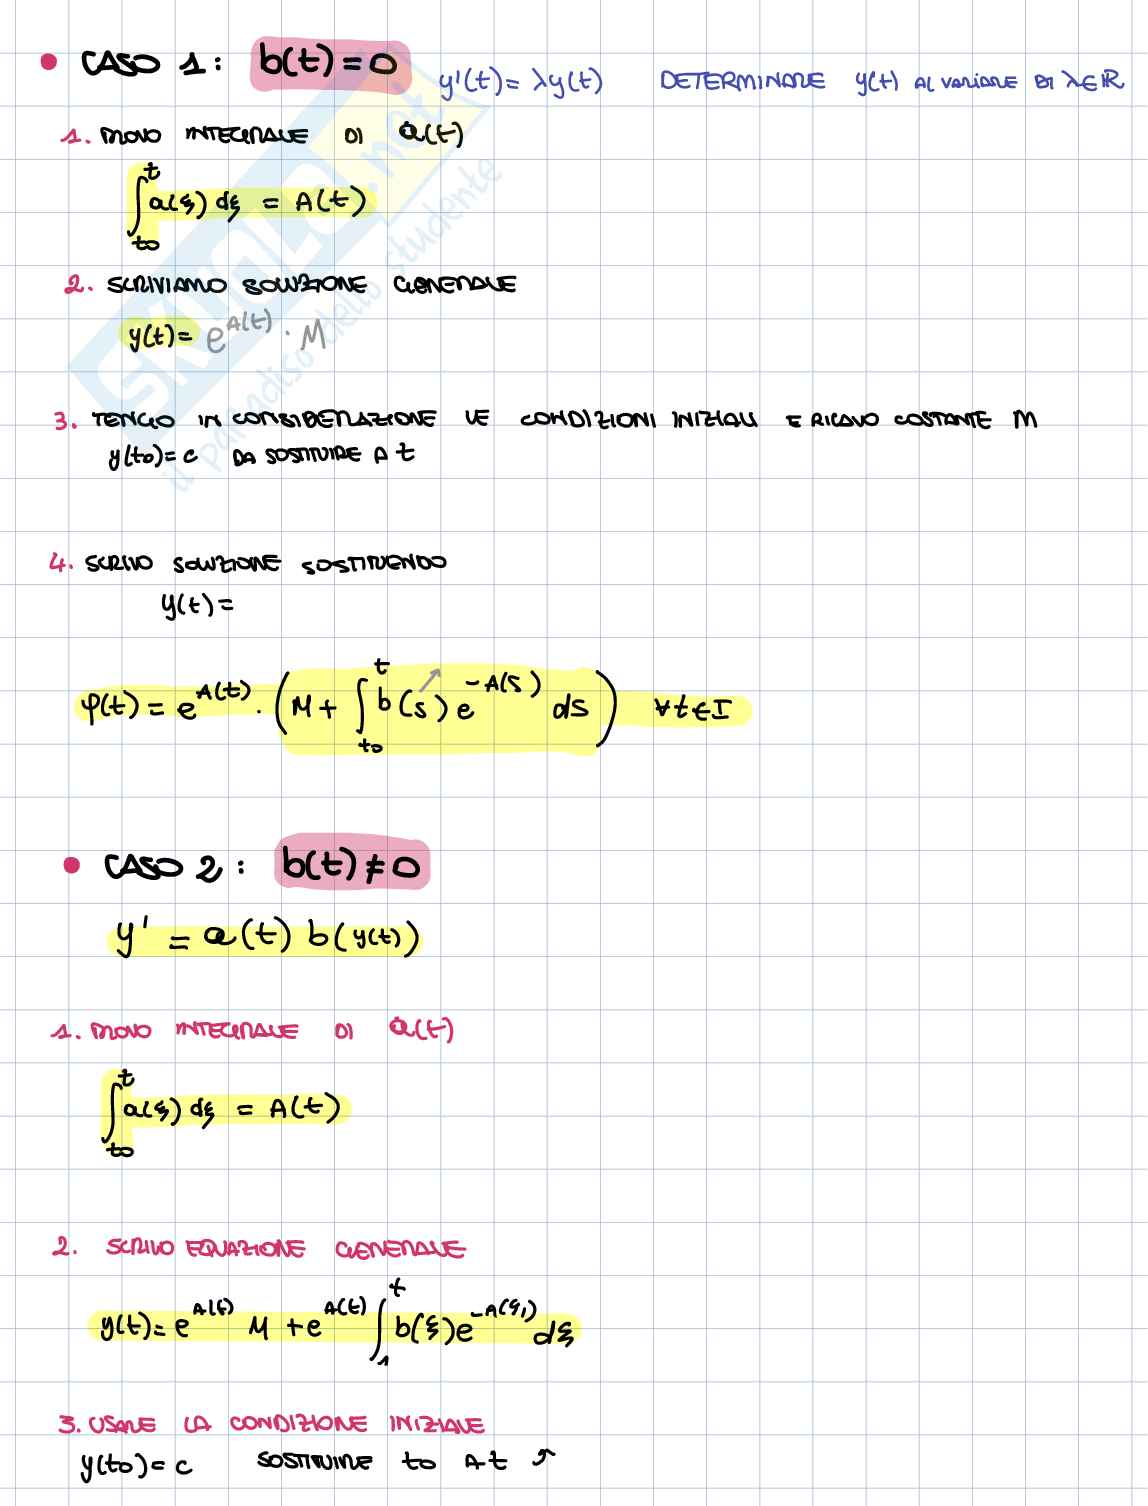 • CASO 1: b(t) = 0
y'(t) = λy(t) DETERMINARE y(t) AL VARIARE DI λ∈ℝ
1. TROVO INTEGRALE DI a(t)
∫_{t0}^{t} a(ξ) dξ = A(t)
2. SCRIVIAMO SOLUZIONE GENERALE
y(t) = e^{A(t)} · M
3. TENGO IN CONSIDERAZIONE LE CONDIZIONI INIZIALI E RICAVO COSTANTE M
y(t0) = c DA SOSTITUIRE A t
4. SCRIVO SOLUZIONE SOSTITUENDO
y(t) =
φ(t) = e^{A(t)} · (M + ∫_{t0}^{t} b(s) e^{-A(s)} ds) ∀t∈I
• CASO 2: b(t) ≠ 0
y' = a(t) b(y(t))
1. TROVO INTEGRALE DI a(t)
∫_{t0}^{t} a(ξ) dξ = A(t)
2. SCRIVO EQUAZIONE GENERALE
y(t) = e^{A(t)} M + e^{A(t)} ∫_{1}^{t} b(ξ) e^{-A(ξ)} dξ
3. USARE LA CONDIZIONE INIZIALE
y(t0) = c SOSTITUIRE t0 A t ↗
SKUOLA.net
il paradiso dello studente